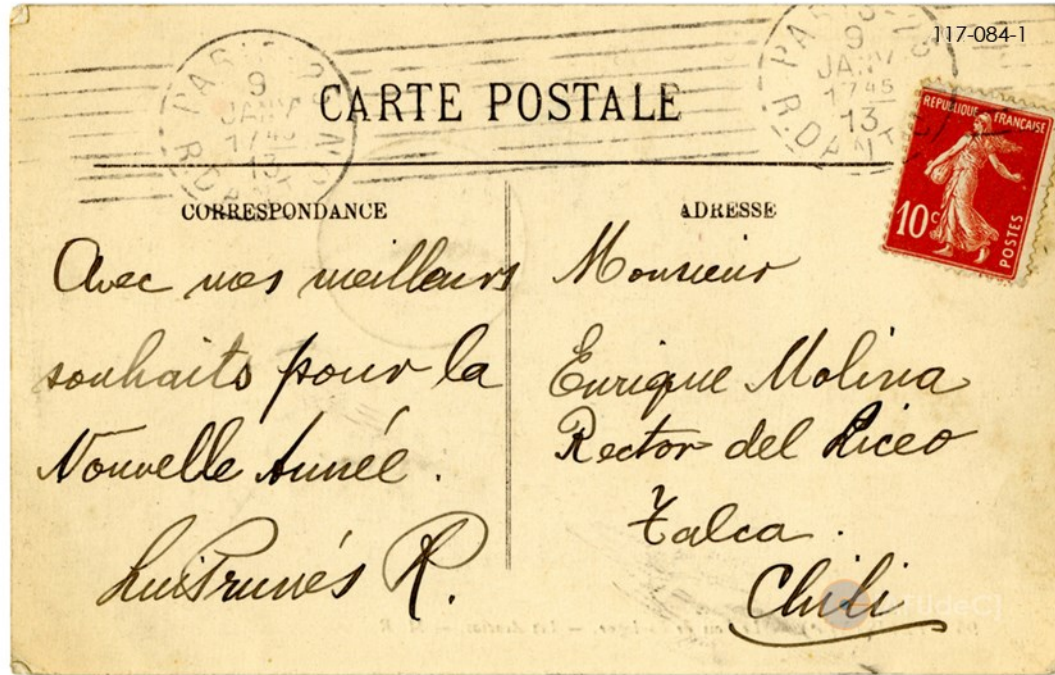 117-084-1
PARIS
9
JANV
17 45
13
R. DANTON
PARIS
9
JANV
17 45
13
R. DANTON
CARTE POSTALE
REPUBLIQUE FRANÇAISE
10c
POSTES
CORRESPONDANCE
Avec mes meilleurs
souhaits pour la
Nouvelle Année.
Luis Prunés R.
ADRESSE
Monsieur
Enrique Molina
Rector del Liceo
Talca.
Chili